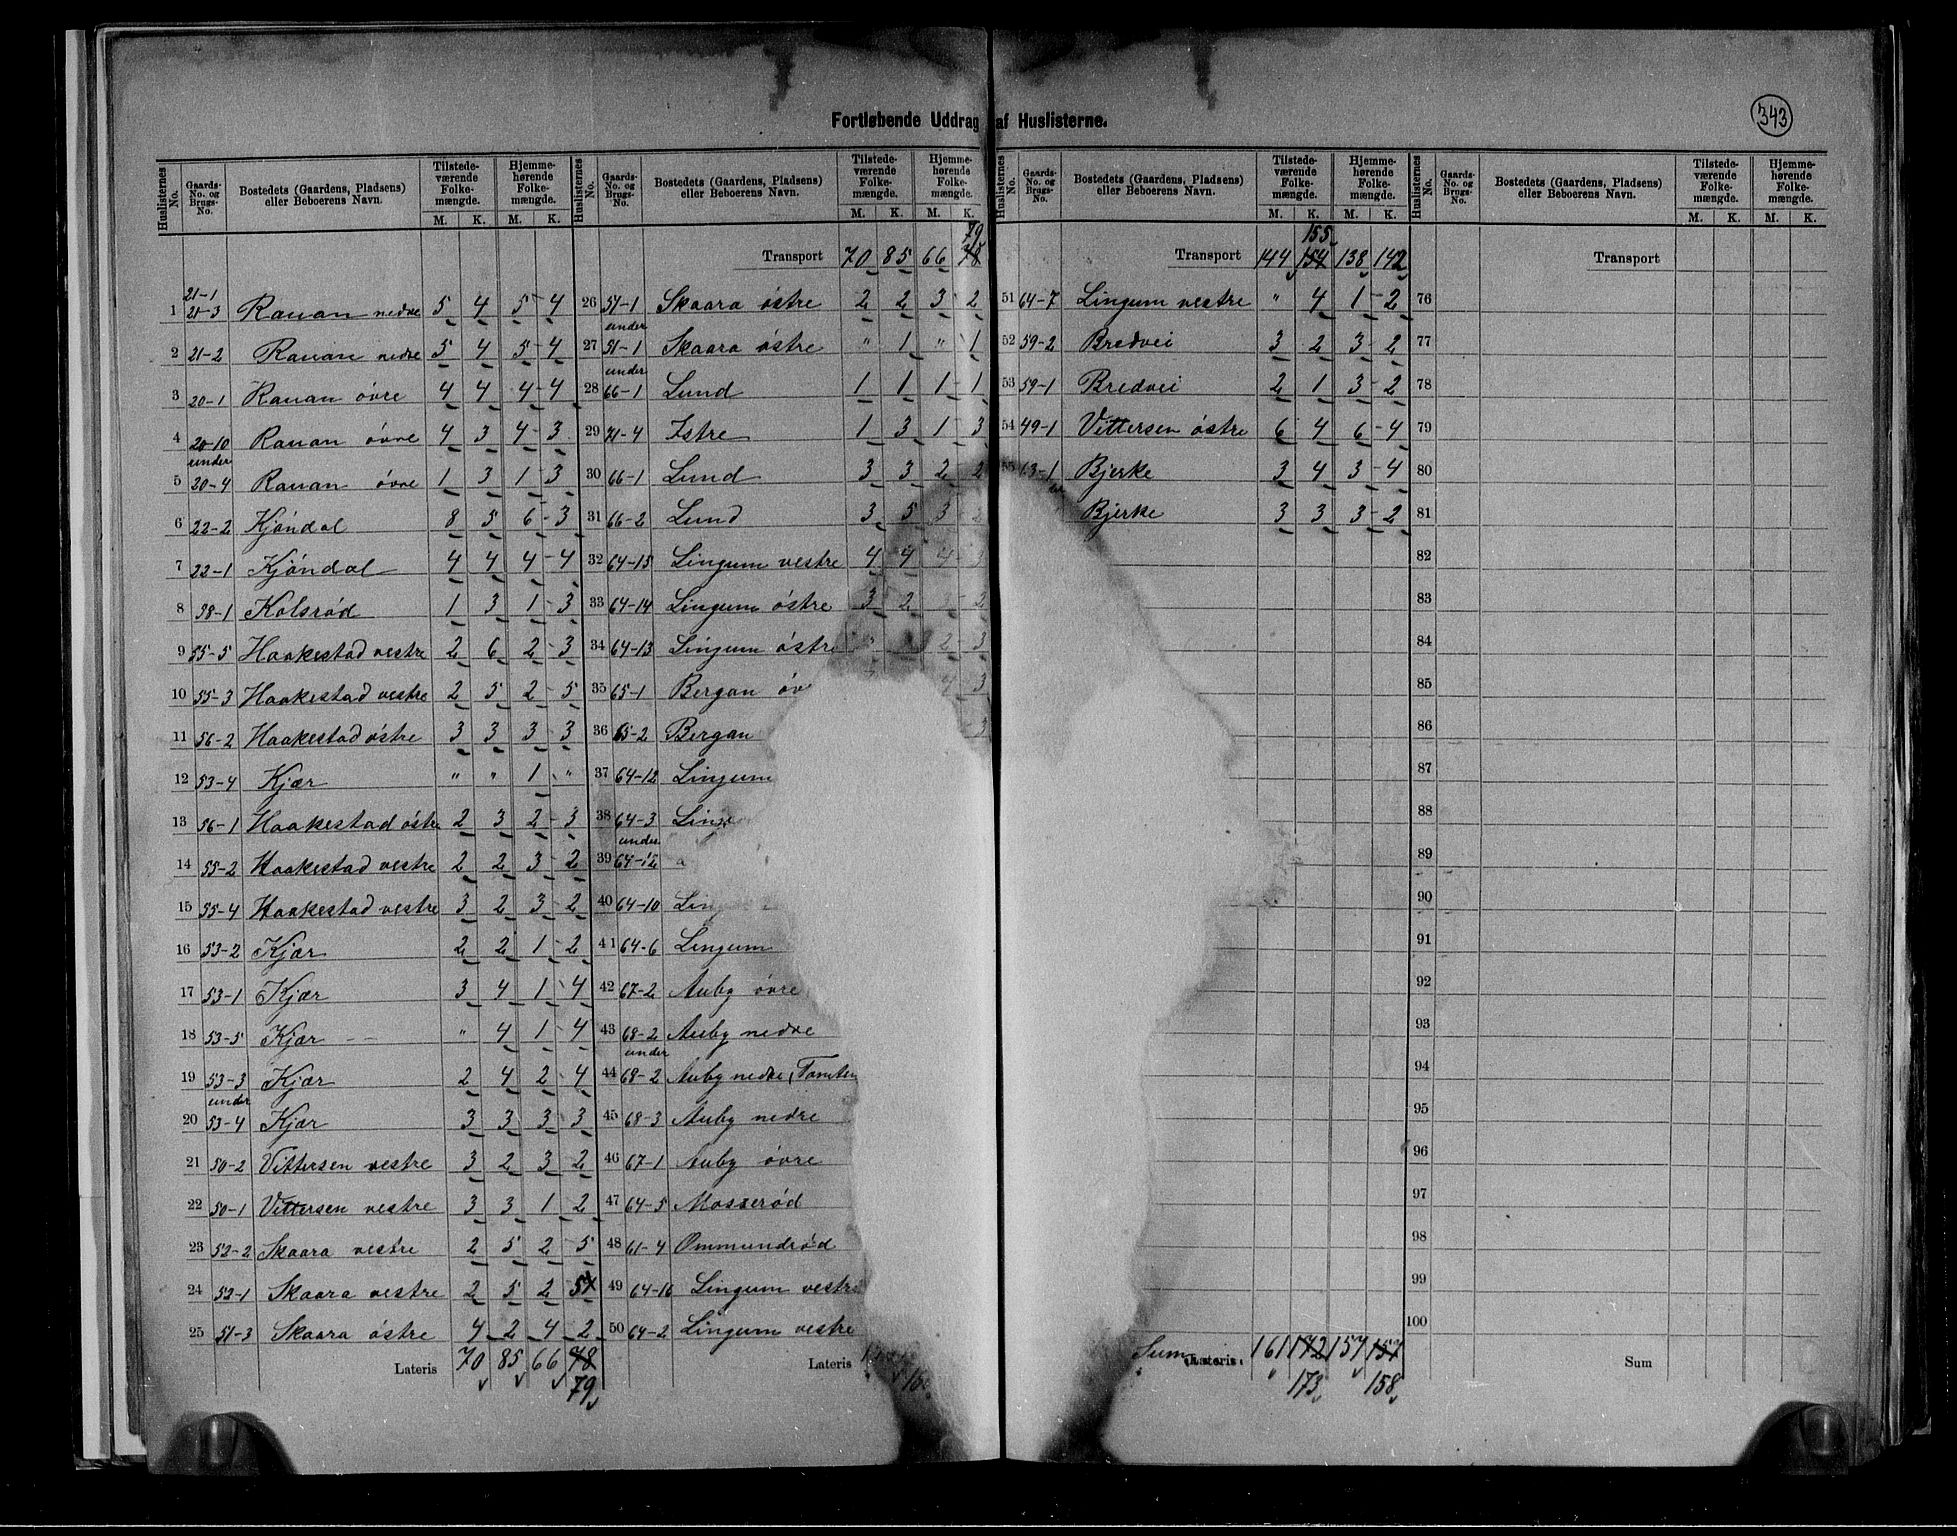 343
Fortløbende Uddrag af Huslisterne.
Huslisternes No. | Gaards-No. og Brugs-No. | Bostedets (Gaardens, Pladsens) eller Beboerens Navn. | Tilstedeværende Folkemængde. M. K. | Hjemmehørende Folkemængde. M. K.
1 21-1 21-3 Rauan nedre 5 4 5 4
2 21-2 Rauan nedre 5 4 5 4
3 20-1 Rauan øvre 4 4 4 4
4 20-10 Rauan øvre 4 3 4 3
5 under 20-4 Rauan øvre 1 3 1 3
6 22-2 Kjøndal 8 5 6 3
7 22-1 Kjøndal 4 4 4 4
8 38-1 Kolsrød 1 3 1 3
9 55-5 Haakestad vestre 2 6 2 3
10 55-3 Haakestad vestre 2 5 2 5
11 56-2 Haakestad østre 3 3 3 3
12 53-4 Kjær " " 1 "
13 56-1 Haakestad østre 2 3 2 3
14 55-2 Haakestad vestre 2 2 3 2
15 55-4 Haakestad vestre 3 2 3 2
16 53-2 Kjær 2 2 1 2
17 53-1 Kjær 3 4 1 4
18 53-5 Kjær " 4 1 4
19 53-3 Kjær 2 4 2 4
20 under 53-4 Kjær 3 3 3 3
21 50-2 Vittersen vestre 3 2 3 2
22 50-1 Vittersen vestre 3 3 1 2
23 52-2 Skaara vestre 2 5 2 5
24 52-1 Skaara vestre 2 5 2 5
25 51-3 Skaara østre 4 2 4 2
Lateris 70 85 66 78
79
Huslisternes No. | Gaards-No. og Brugs-No. | Bostedets (Gaardens, Pladsens) eller Beboerens Navn. | Tilstedeværende Folkemængde. M. K. | Hjemmehørende Folkemængde. M. K.
79
Transport 70 85 66 78
26 51-1 Skaara østre 2 2 3 2
27 under 51-1 Skaara østre " 1 " 1
28 under 66-1 Lund 1 1 1 1
29 71-4 Istre 1 3 1 3
30 66-1 Lund 3 3 2 2
31 66-2 Lund 3 5 3 2
32 64-15 Lingum vestre 4 4 4 3
33 64-14 Lingum østre 3 2 2
34 64-13 Lingum østre " 2 3
35 65-1 Bergan 4 3
36 65-2 Bergan 3
37 64-12 Lingum
38 64-3
39 under 64-12
40 64-10
41 64-6 Lingum
42 67-2 Auby øvre
43 68-2 Auby nedre
44 under 68-2 Auby nedre, Tomten
45 68-3 Auby nedre
46 67-1 Auby øvre
47 64-5 Mosserød
48 61-4 Ommundrød
49 64-16 Lingum vestre
50 64-2 Lingum vestre
Lateris
Huslisternes No. | Gaards-No. og Brugs-No. | Bostedets (Gaardens, Pladsens) eller Beboerens Navn. | Tilstedeværende Folkemængde. M. K. | Hjemmehørende Folkemængde. M. K.
155
Transport 144 154 138 142
51 64-7 Lingum vestre " 4 1 2
52 59-2 Bredvei 3 2 3 2
53 59-1 Bredvei 2 1 3 2
54 49-1 Vittersen østre 6 4 6 4
55 Bjerke 3 4 3 4
Bjerke 3 3 3 2
Sum Lateris 161 172 157 157
" 173 158
Huslisternes No. | Gaards-No. og Brugs-No. | Bostedets (Gaardens, Pladsens) eller Beboerens Navn. | Tilstedeværende Folkemængde. M. K. | Hjemmehørende Folkemængde. M. K.
Transport
76
77
78
79
80
81
82
83
84
85
86
87
88
89
90
91
92
93
94
95
96
97
98
99
100
Sum